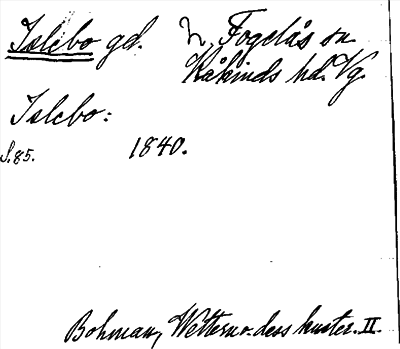 Islebo gd. N. Fogelås sn
Kåkinds hd. Vg.
Islebo:
S. 85. 1840.
Bohman, Wettern o. dess kuster. II.